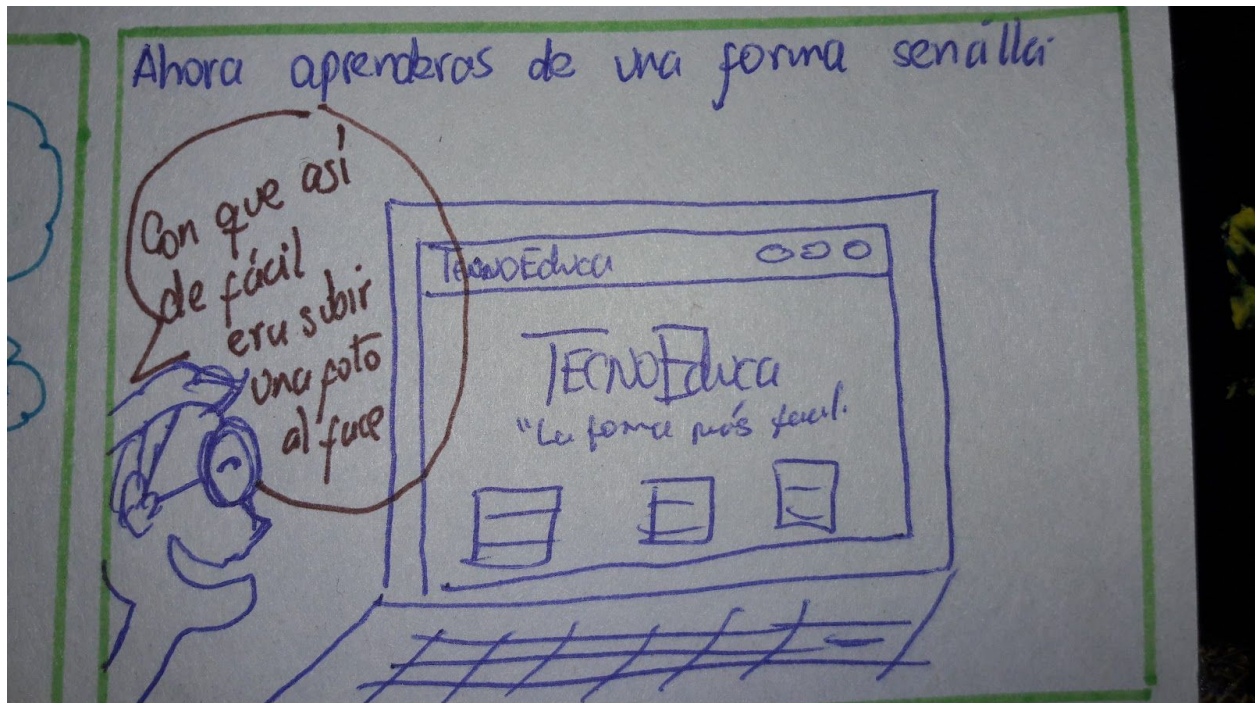 Ahora aprenderas de una forma sencilla
Con que así
de fácil
era subir
una foto
al face
TecnoEduca
TECNOEduca
"La forma más facil.